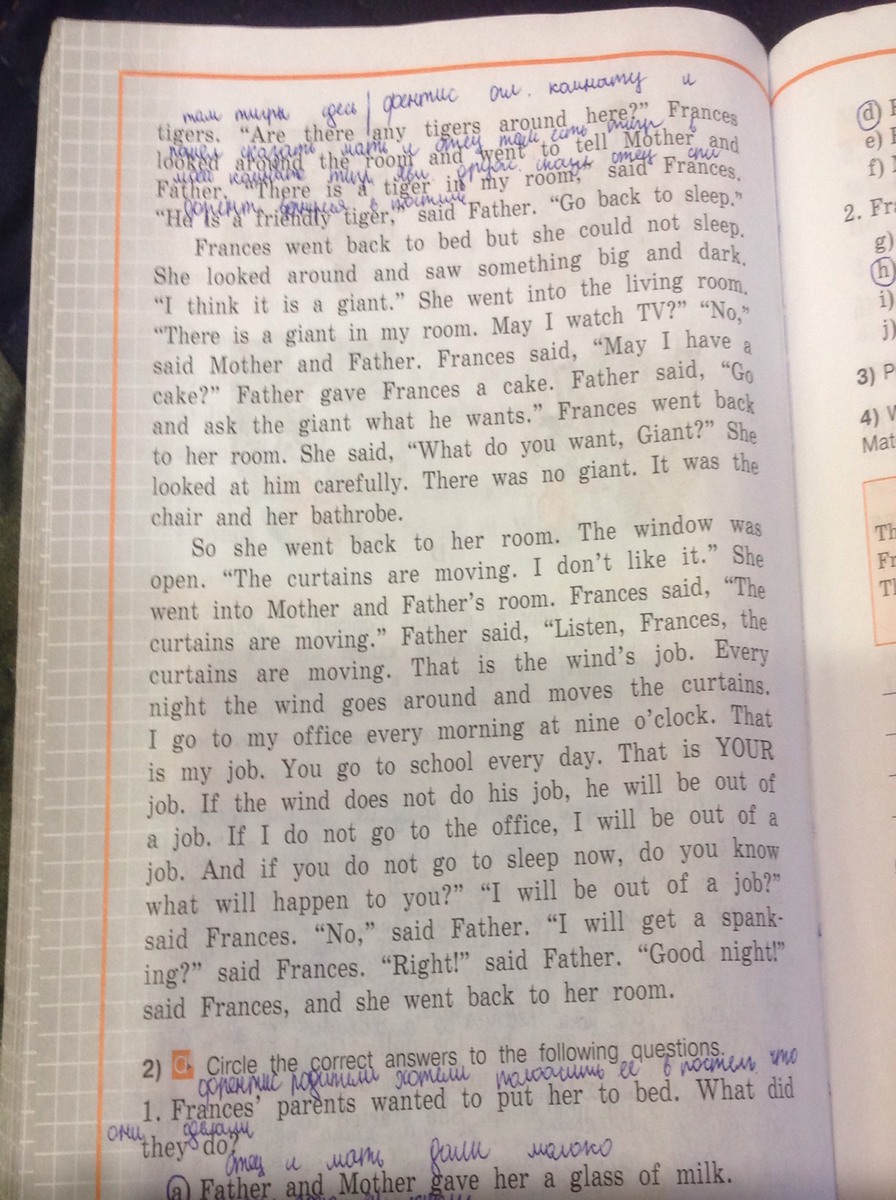 там тигры здесь френтис ог. комнату и
tigers. “Are there any tigers around here?” Frances
мать и отец там есть тигр в
looked around the room and went to tell Mother and
моей комнате тигр
Father. “There is a tiger in my room,” said Frances.
“He is a friendly tiger,” said Father. “Go back to sleep.”
Frances went back to bed but she could not sleep.
She looked around and saw something big and dark.
“I think it is a giant.” She went into the living room.
“There is a giant in my room. May I watch TV?” “No,”
said Mother and Father. Frances said, “May I have a
cake?” Father gave Frances a cake. Father said, “Go
and ask the giant what he wants.” Frances went back
to her room. She said, “What do you want, Giant?” She
looked at him carefully. There was no giant. It was the
chair and her bathrobe.
So she went back to her room. The window was
open. “The curtains are moving. I don’t like it.” She
went into Mother and Father’s room. Frances said, “The
curtains are moving.” Father said, “Listen, Frances, the
curtains are moving. That is the wind’s job. Every
night the wind goes around and moves the curtains.
I go to my office every morning at nine o’clock. That
is my job. You go to school every day. That is YOUR
job. If the wind does not do his job, he will be out of
a job. If I do not go to the office, I will be out of a
job. And if you do not go to sleep now, do you know
what will happen to you?” “I will be out of a job?”
said Frances. “No,” said Father. “I will get a spank-
ing?” said Frances. “Right!” said Father. “Good night!”
said Frances, and she went back to her room.
2) a Circle the correct answers to the following questions.
френтис родители хотели положить её в постель что
1. Frances’ parents wanted to put her to bed. What did
они делали
they do?
отец и мать дали молоко
a) Father and Mother gave her a glass of milk.
d)
e)
f)
2. Fr
g)
h)
i)
j)
3) P
4) W
Mat
Th
Fr
Th